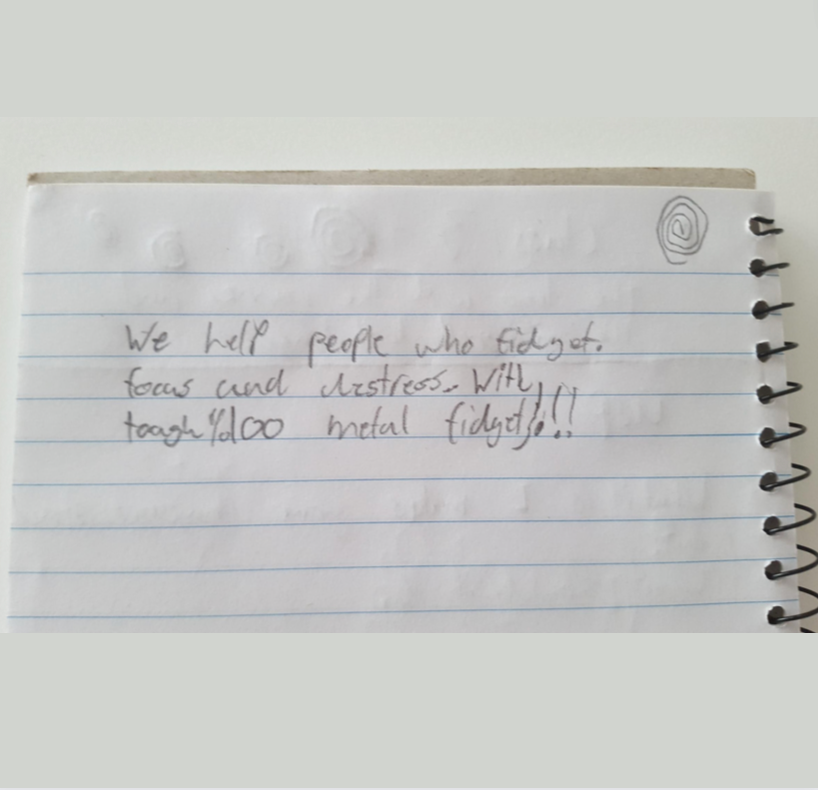 We help people who fidget.
focus and distress. With
tough %100 metal fidgets!!!